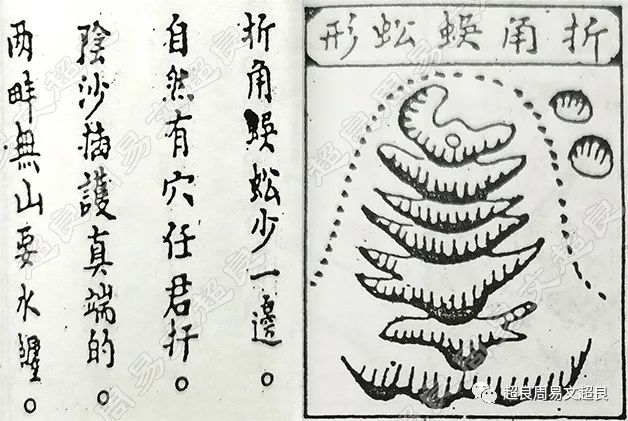 折角蜈蚣少一邊。
自然有穴任君扦。
陰沙插護真端的。
兩畔無山要水纏。
折角蜈蚣形
超良周易文超良